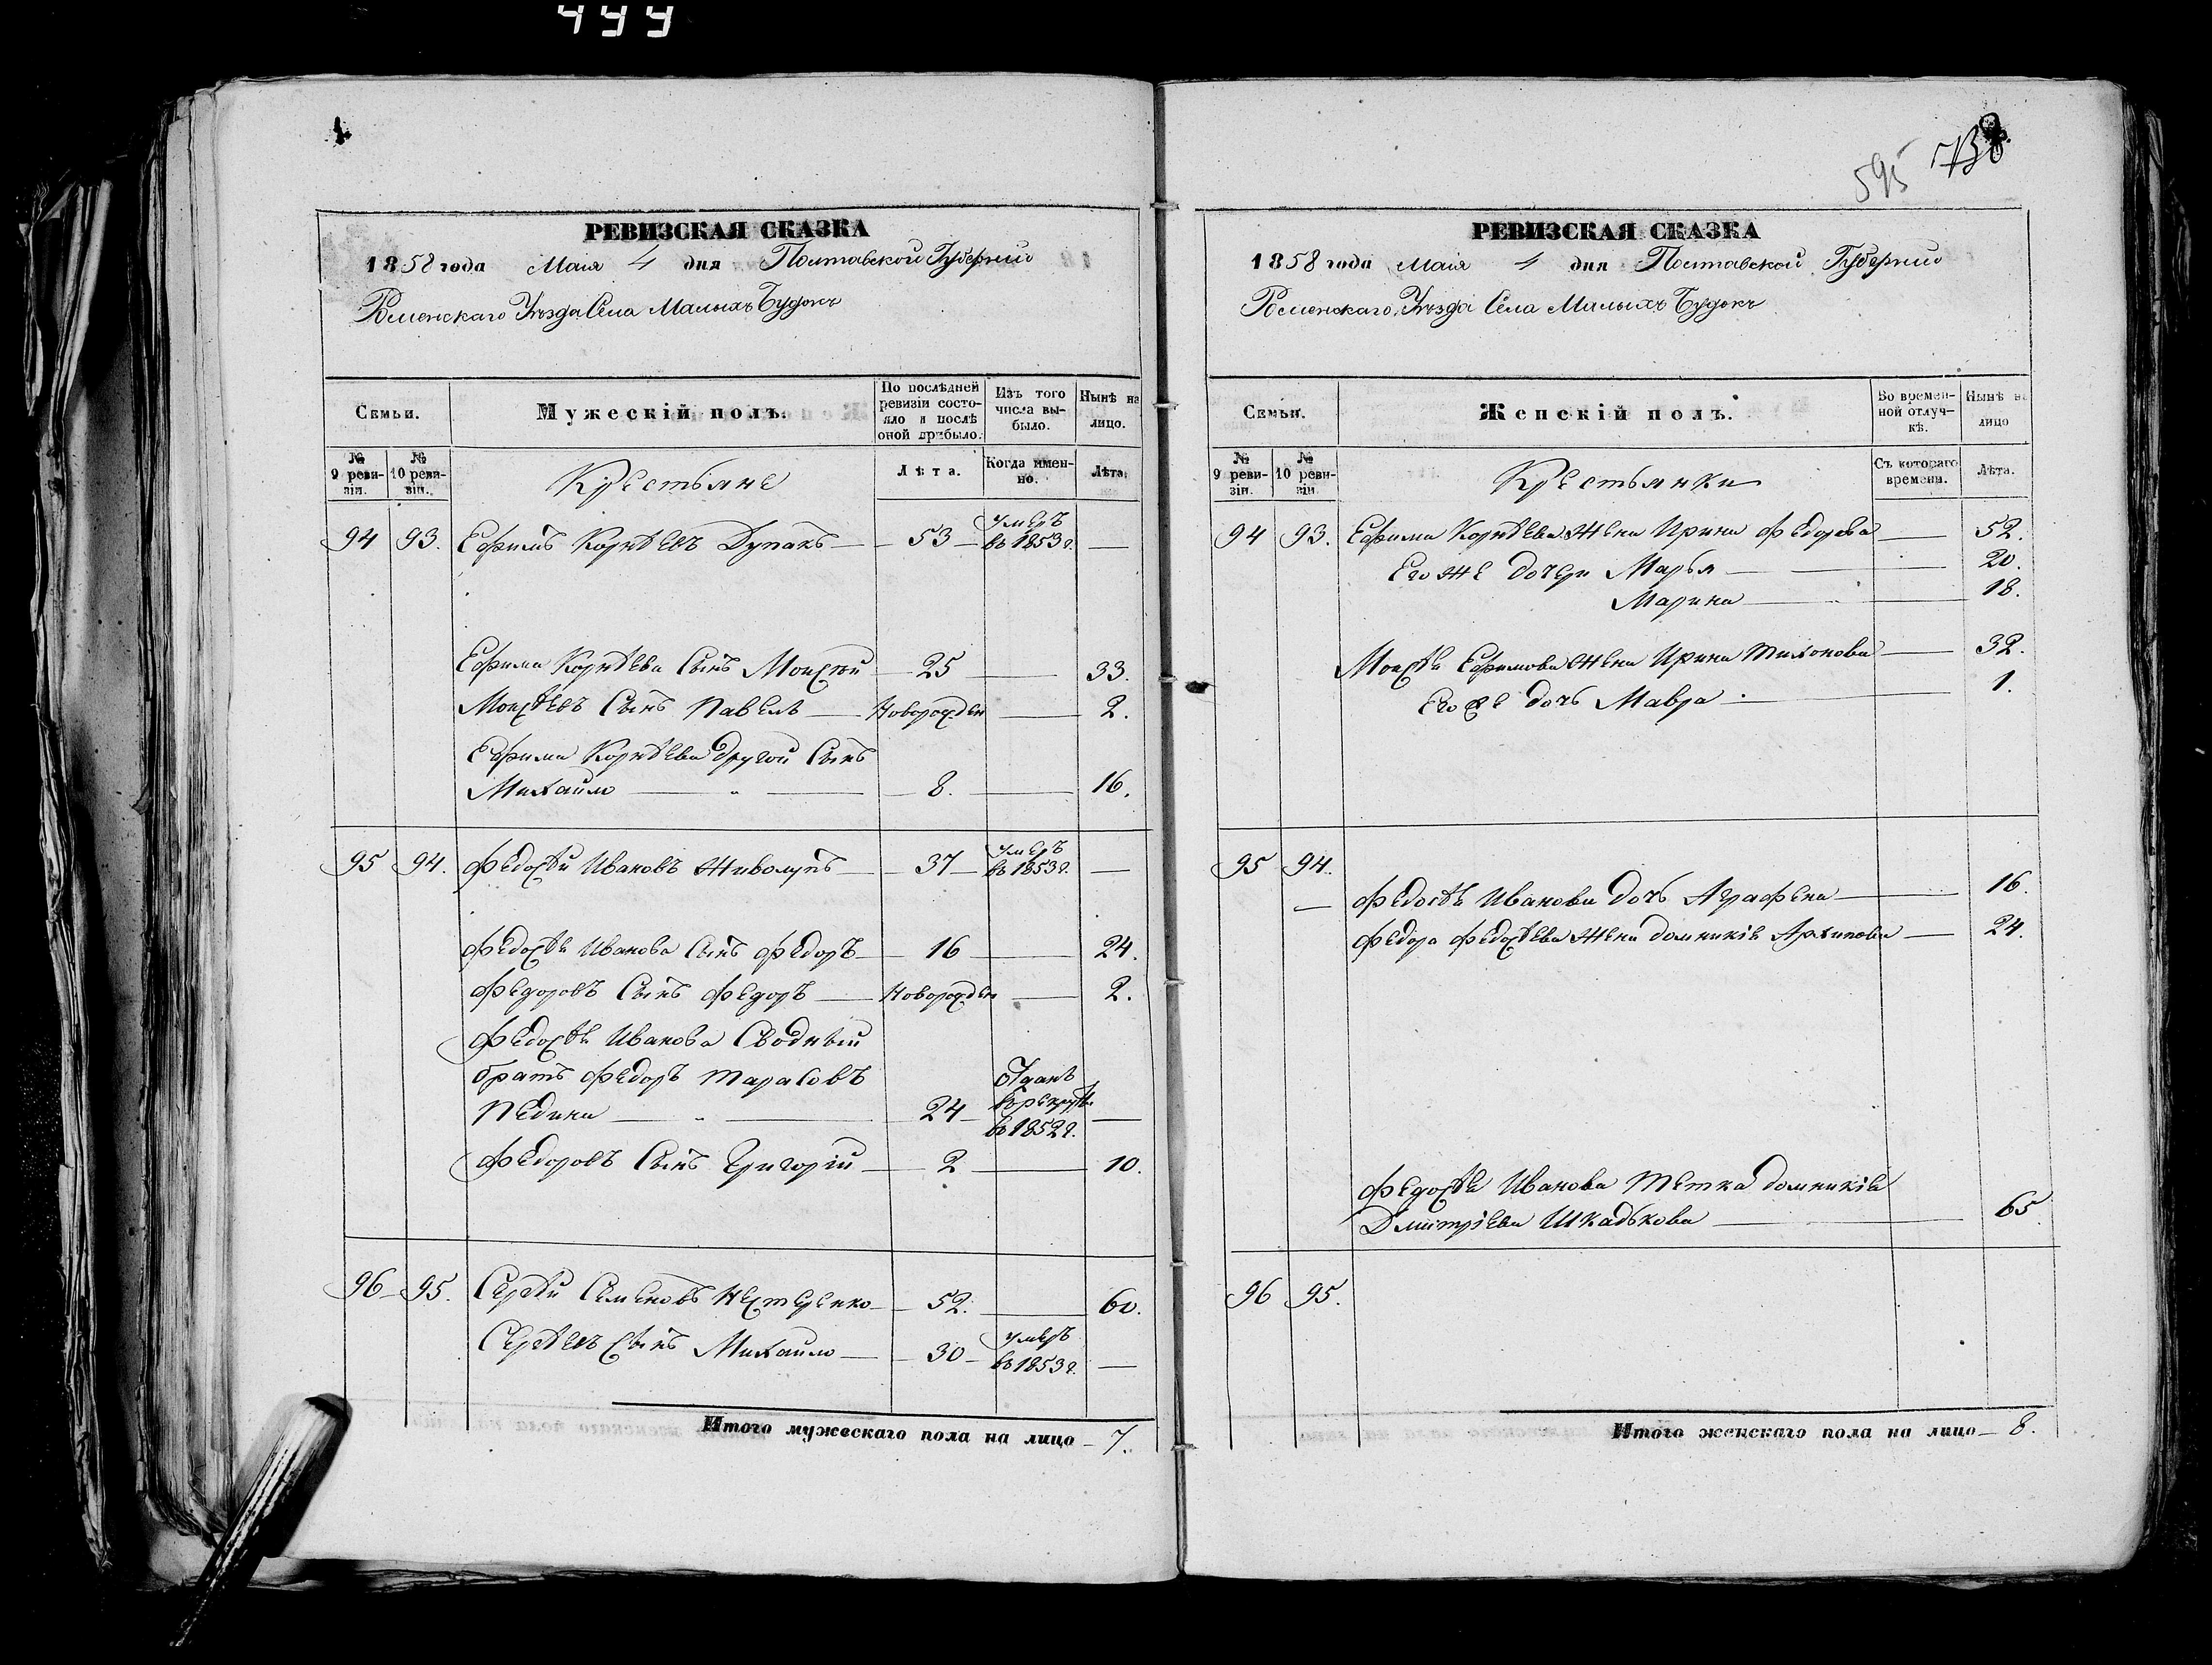 499
РЕВИЗСКАЯ СКАЗКА
1858 года Маія 4 дня Полтавской Губерніи
Роменскаго Уѣзда Села Малыхъ Будокъ
Семьи.
Мужескій полъ.
По послѣдней ревизіи состояло и послѣ оной прибыло.
Изъ того числа выбыло.
Нынѣ на лицо.
№ 9 ревизіи.
№ 10 ревизіи.
Крестьяне
Лѣта.
Когда именно.
Лѣта.
94 93. Ефимъ Корнѣевъ Дупакъ — 53 — умеръ въ 1853 г. —
Ефима Корнѣева Сынъ Моисѣй — 25 — 33.
Моисѣевъ Сынъ Павелъ — Новорожден — 2.
Ефима Корнѣева другой Сынъ
Михайло — " — 8. — 16.
95 94. Федосѣй Ивановъ Живолупъ — 37 — умеръ въ 1853 г. —
Федосѣя Иванова Сынъ Федоръ — 16 — 24.
Федоровъ Сынъ Федоръ — Новорожден — 2.
Федосѣя Иванова Сводный
братъ Федоръ Тарасовъ
Педина — " — 24 — Отданъ в рекруты въ 1852 г. —
Федоровъ Сынъ Григорій — 2 — 10.
96 95. Сергѣй Семеновъ Нестеренко — 52. — 60.
Сергѣевъ Сынъ Михайло — 30 — умеръ въ 1853 г. —
Итого мужескаго пола на лицо — 7.
595
РЕВИЗСКАЯ СКАЗКА
1858 года Маія 4 дня Полтавской Губерніи
Роменскаго Уѣзда Села Малыхъ Будокъ
Семьи.
Женскій полъ.
Во временной отлучкѣ.
Нынѣ на лицо
№ 9 ревизіи.
№ 10 ревизіи.
Крестьянки
Съ котораго времени.
Лѣта.
94 93. Ефима Корнѣева Жена Ирина Федорова — 52.
Его же дочери Марья — 20.
Марина — 18.
Моисѣя Ефимова Жена Ирина Тихонова — 32.
Его же дочь Мавра — 1.
95 94.
— Федосѣя Иванова дочь Аграфена — 16.
Федора Федосѣева Жена Домникія Архипова — 24.
Федосѣя Иванова Тетка Домникія
Дмитріева Шкадькова — 65
96 95.
Итого женскаго пола на лицо — 8.